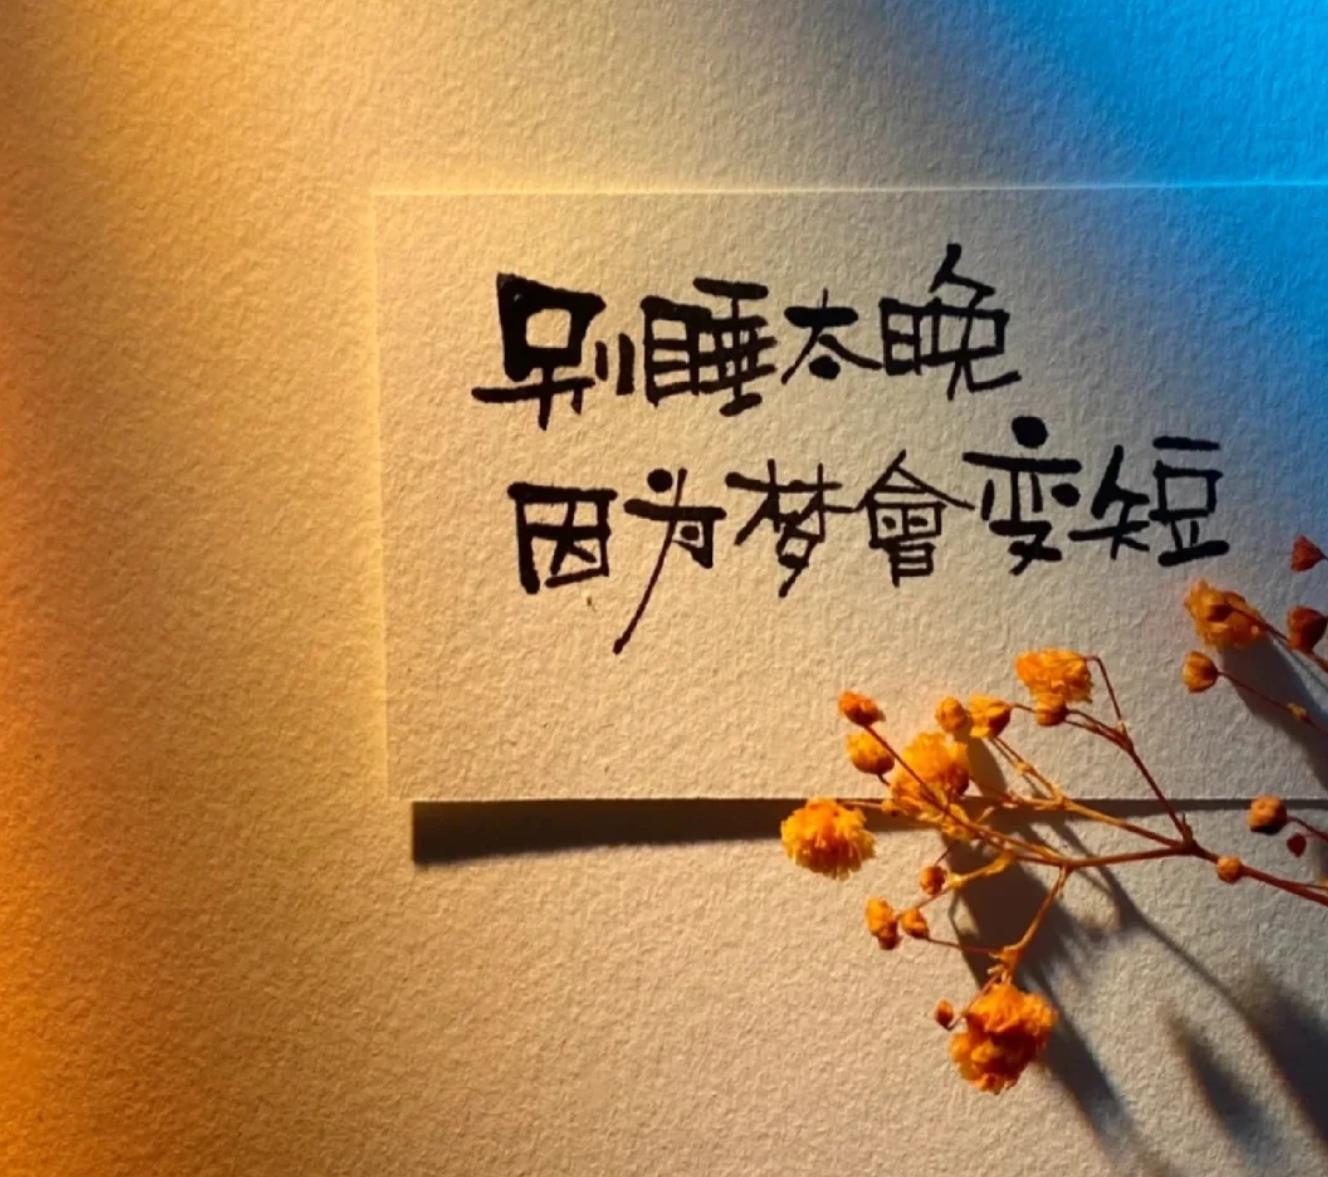 别睡太晚
因为梦會变短